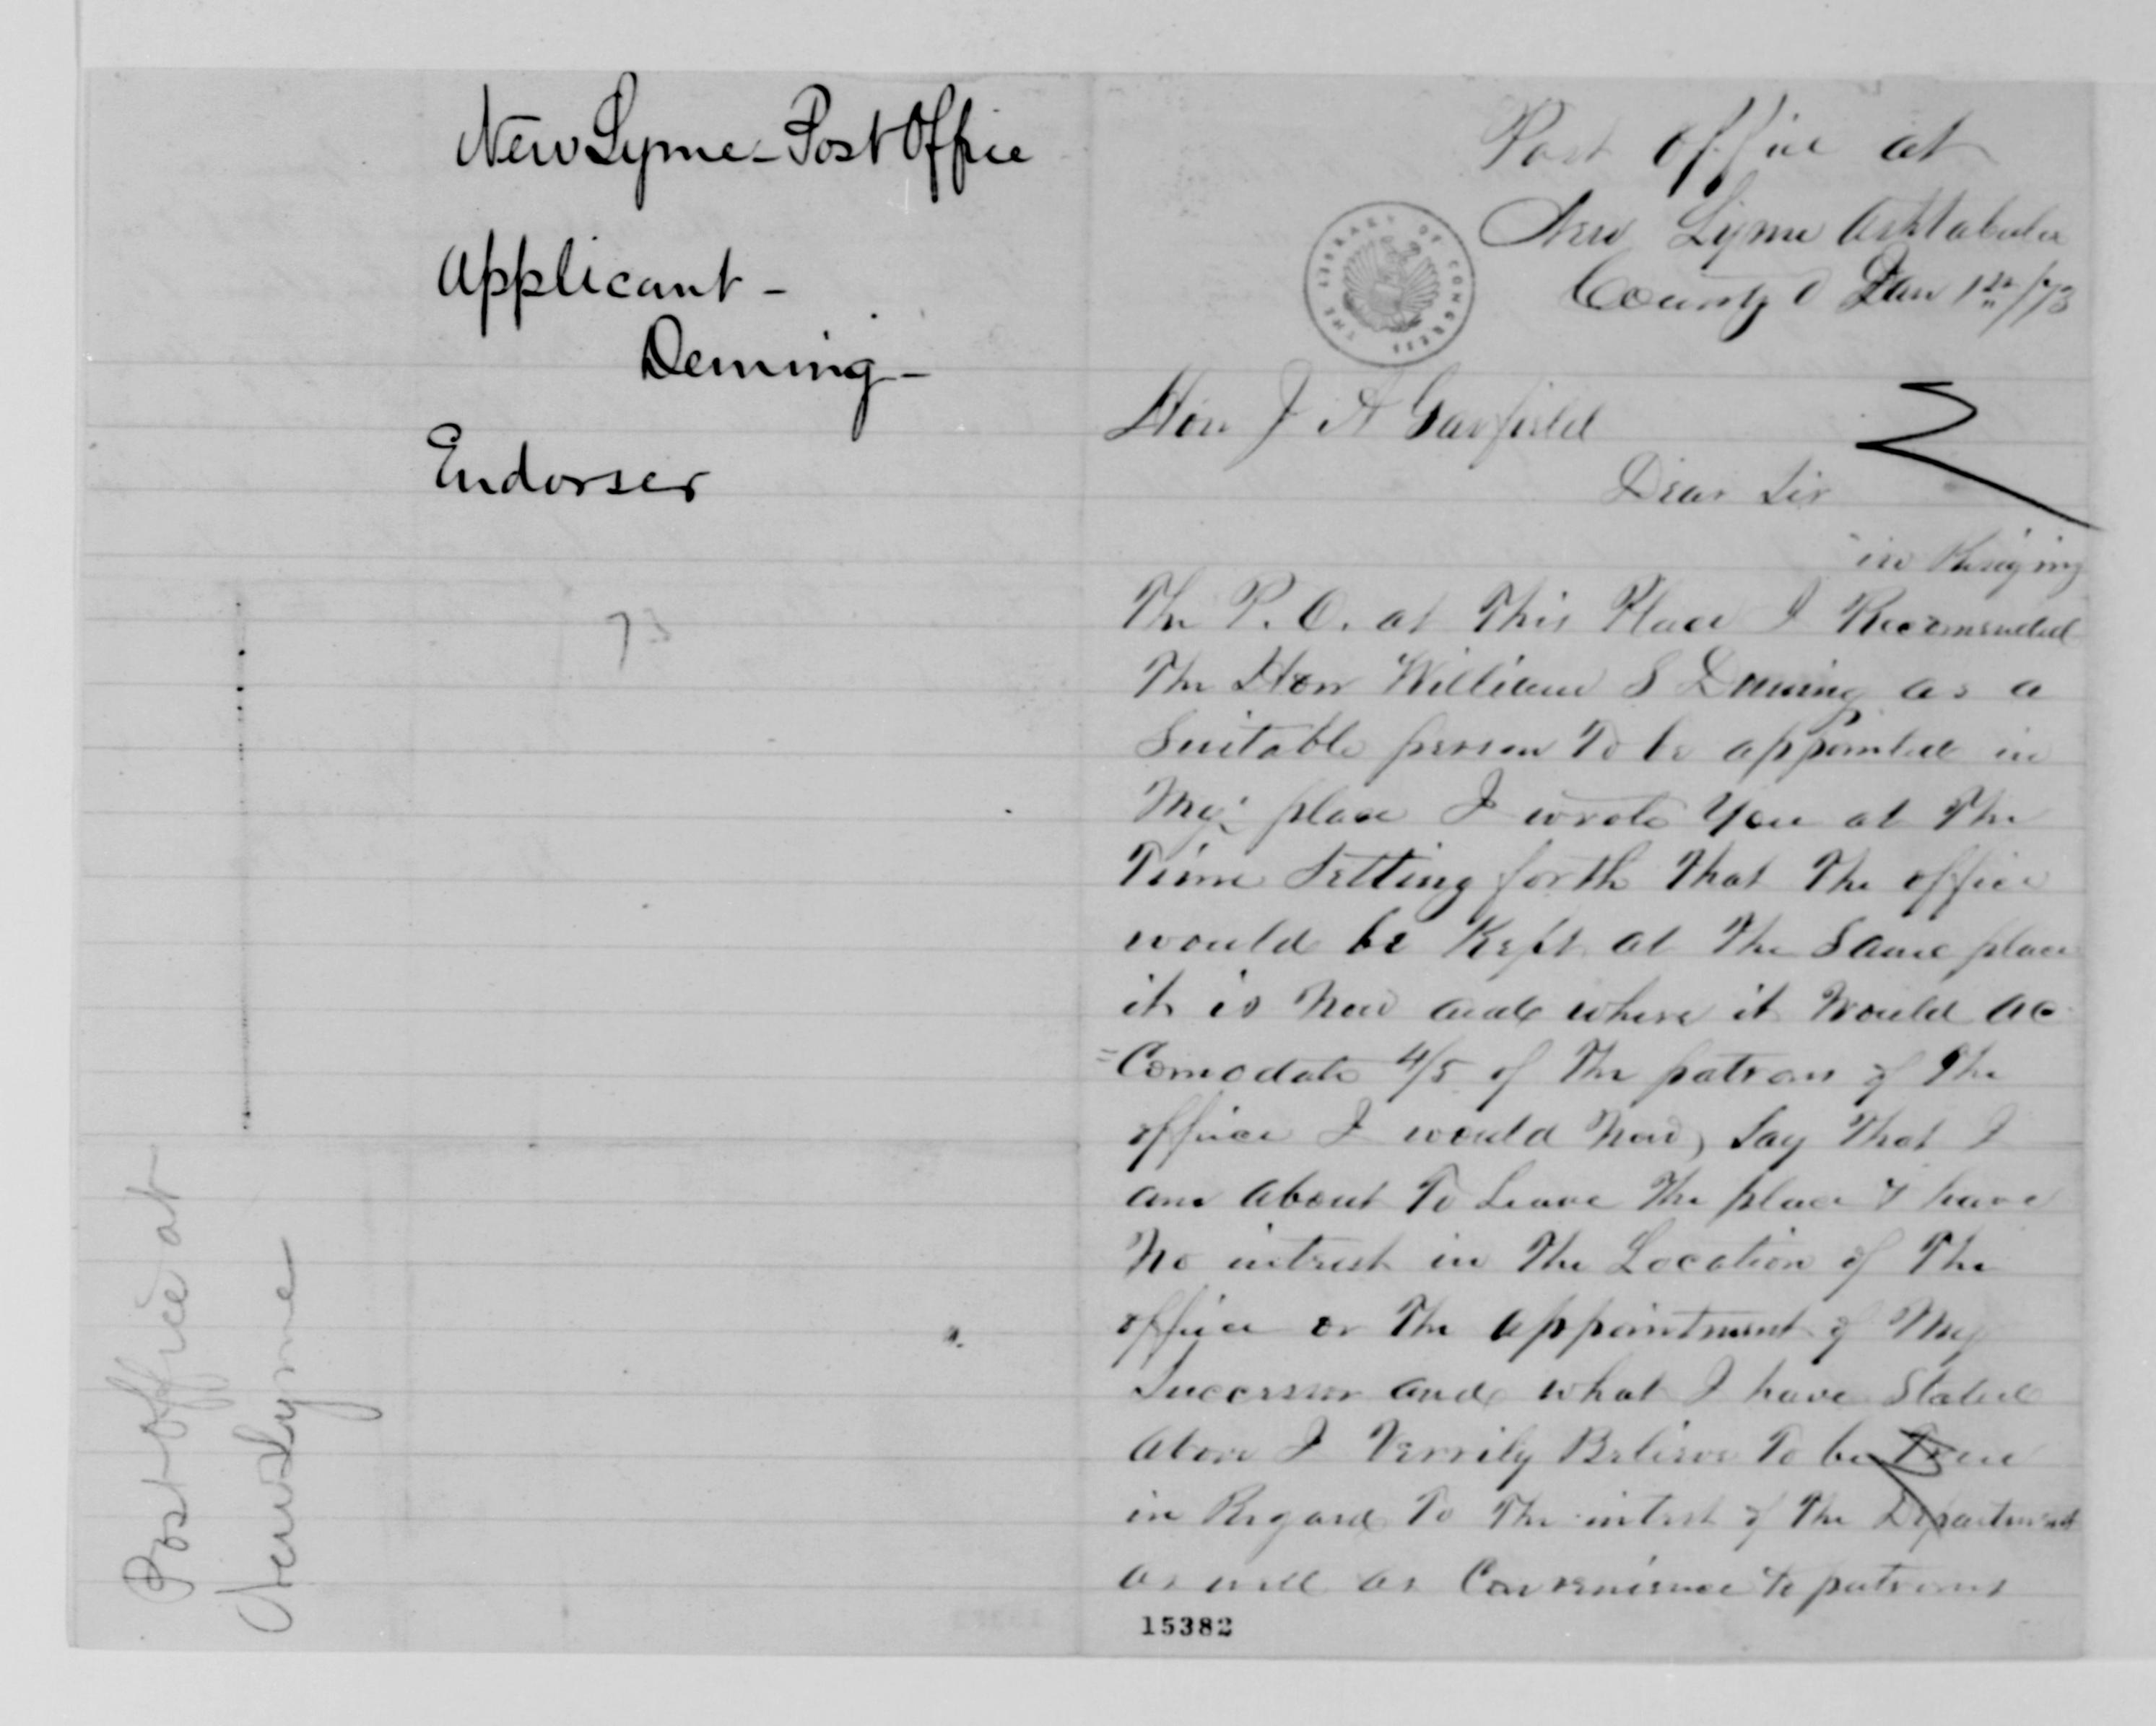 New Lyme - Post Office
Applicant -
Deming -
Endorser
73
Post Office at
New Lyme
Post office at
New Lyme Ashtabula
County O Jan 1st /73
THE LIBRARY OF CONGRESS
Hon J A Garfield
Dear Sir
in
The P. O. at This Place I Recomended
The Hon William S Deming as a
Suitable person To be appointed in
My place I wrote You at The
Time Setting forth That The office
would be Kept at The Same place
it is Now and where it Would ac
=Comodate 4/5 of The patrons of The
office I would Now, Say That I
am about To Leave The place & have
No intrest in The Location of The
office or The appointment of My
Successor and what I have Stated
above I Verrily Believe To be True
in Regard To The intrest of The Department
as well as Convenience to patrons
15382